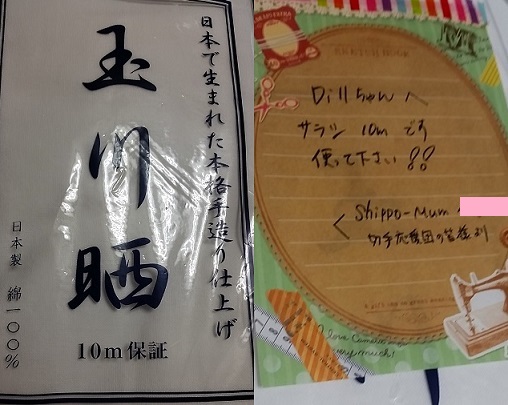 日本で生まれた本格手造り仕上げ
玉川晒
日本製 綿一〇〇%
10m保証
Dillちゃんへ
サラシ 10m です
使って下さい!!
Shippo-Mum
切手応援団の皆様より